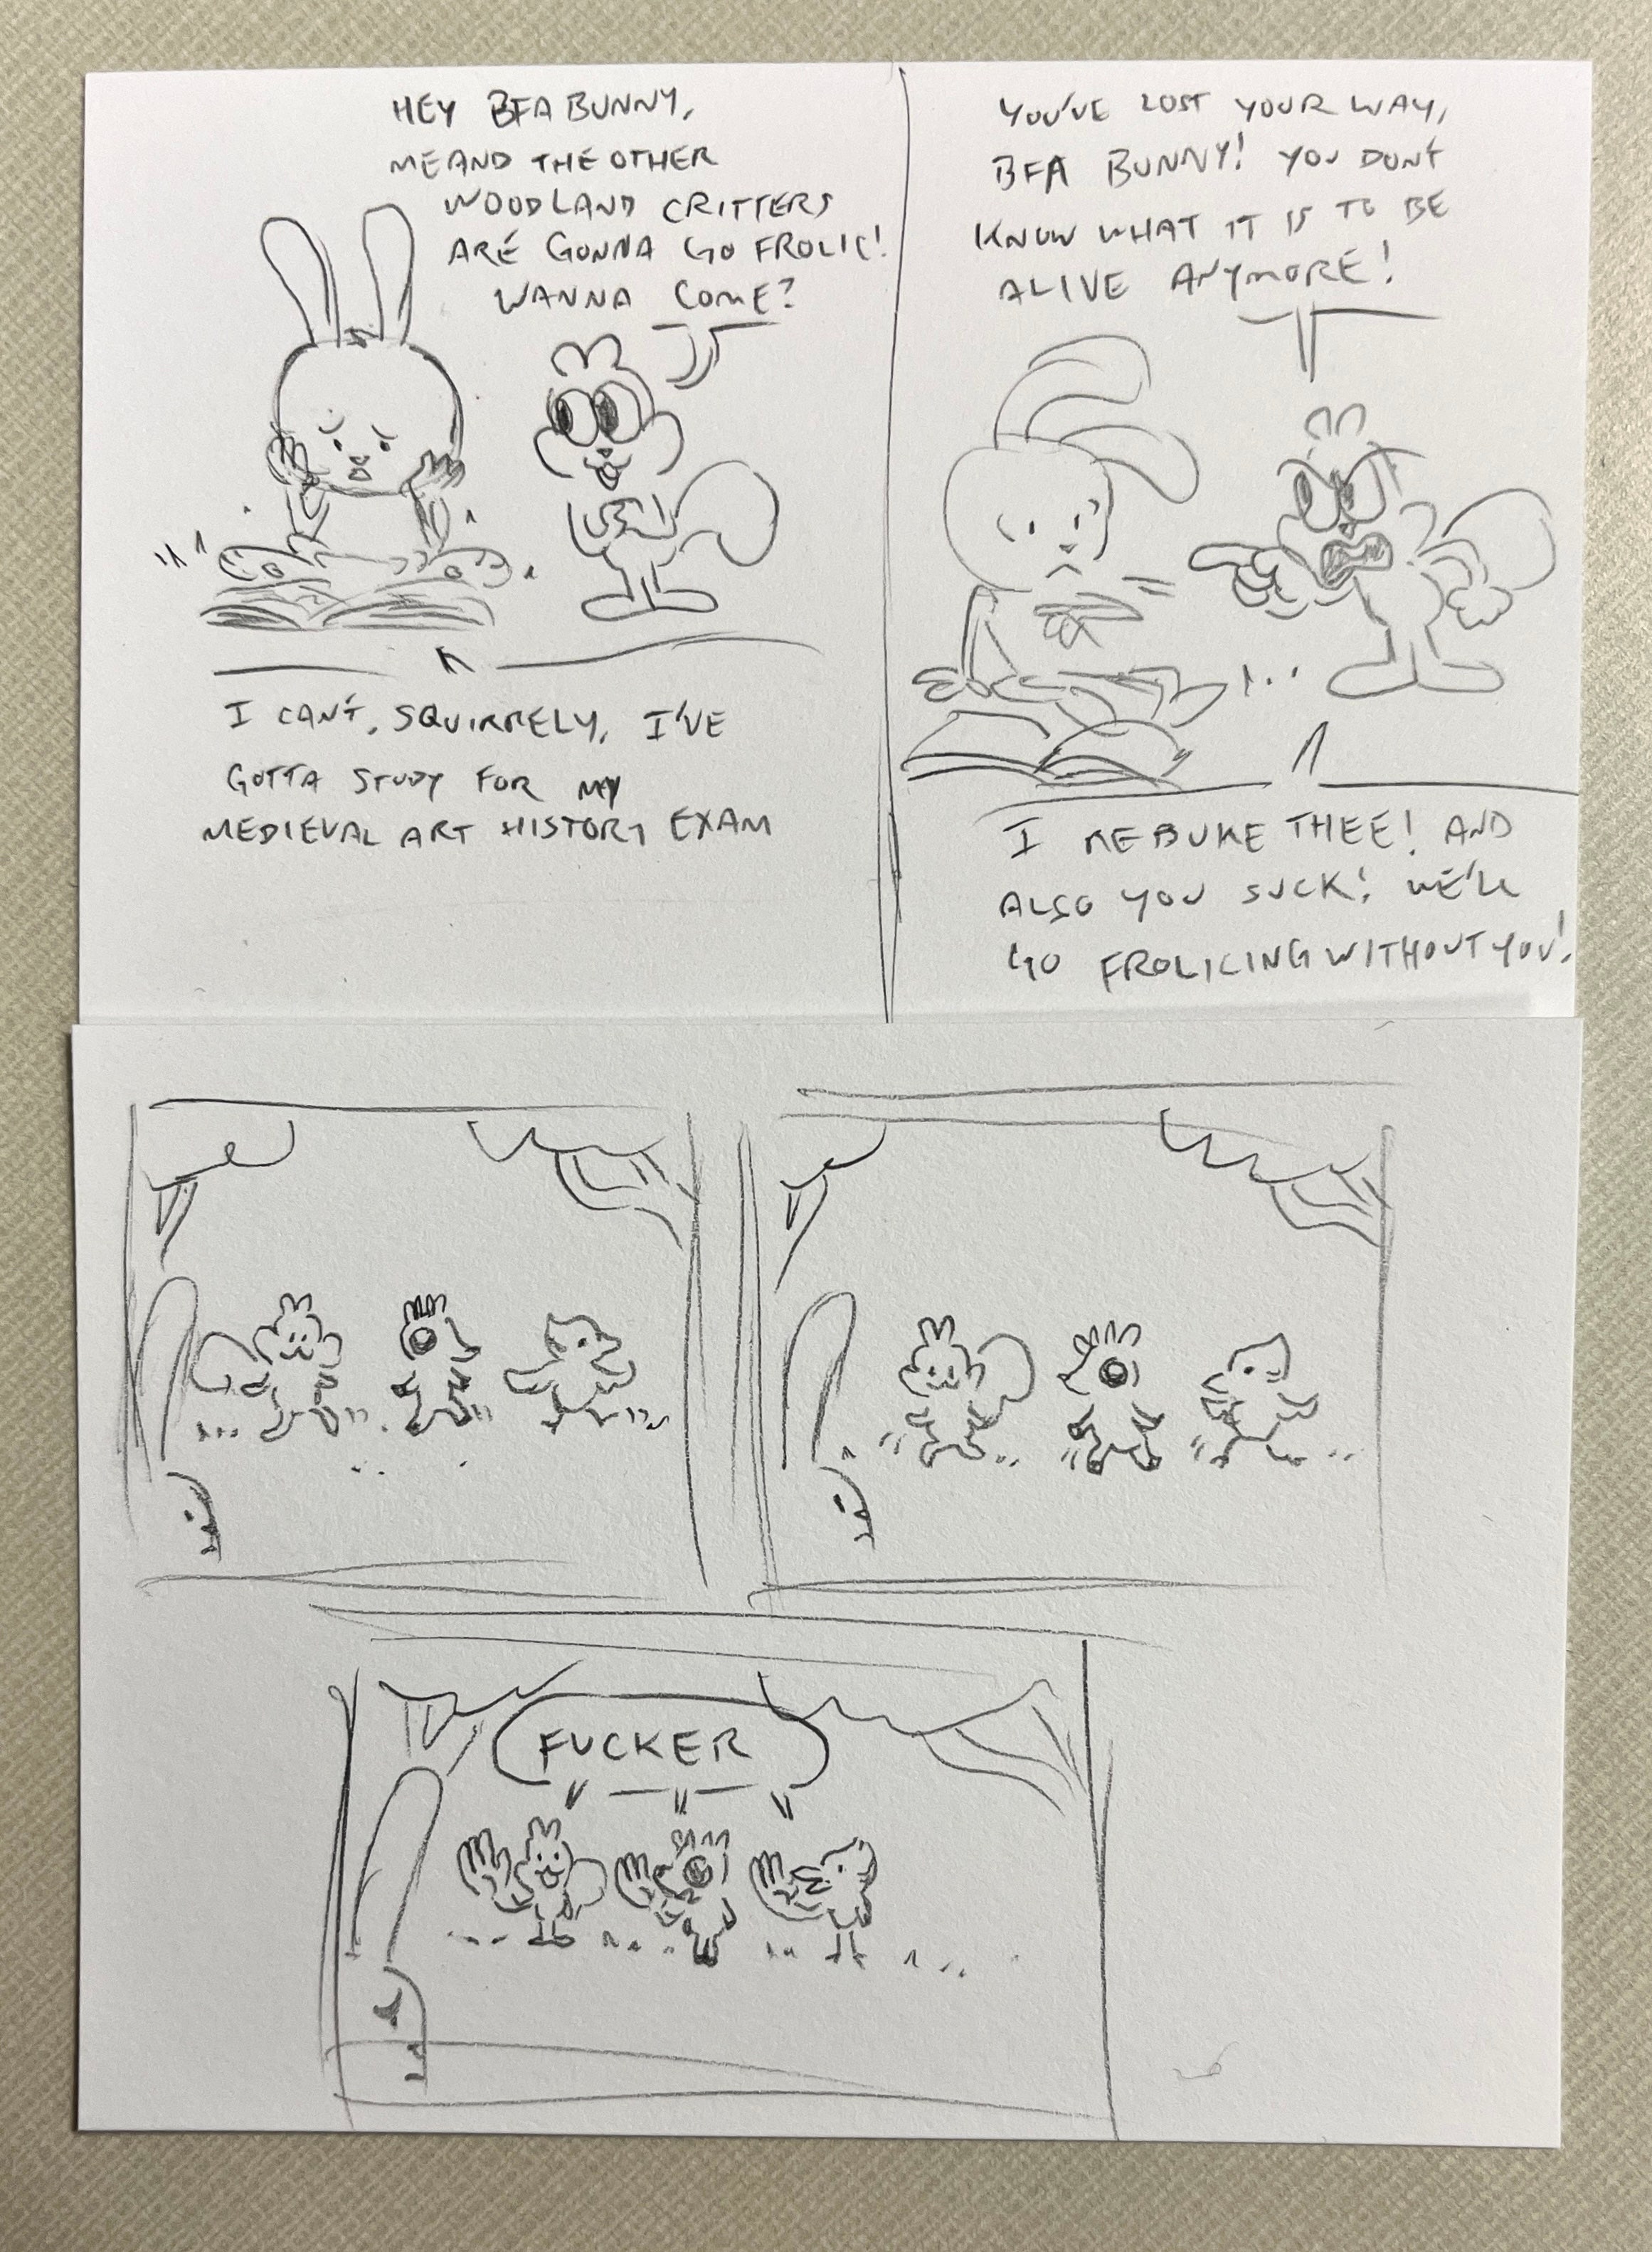 HEY BFA BUNNY,
ME AND THE OTHER
WOODLAND CRITTERS
ARE GONNA GO FROLIC!
WANNA COME?
I CAN'T, SQUIRRELY, I'VE
GOTTA STUDY FOR MY
MEDIEVAL ART HISTORY EXAM
YOU'VE LOST YOUR WAY,
BFA BUNNY! YOU DON'T
KNOW WHAT IT IS TO BE
ALIVE ANYMORE!
I REBUKE THEE! AND
ALSO YOU SUCK! WE'LL
GO FROLICING WITHOUT YOU!
FUCKER